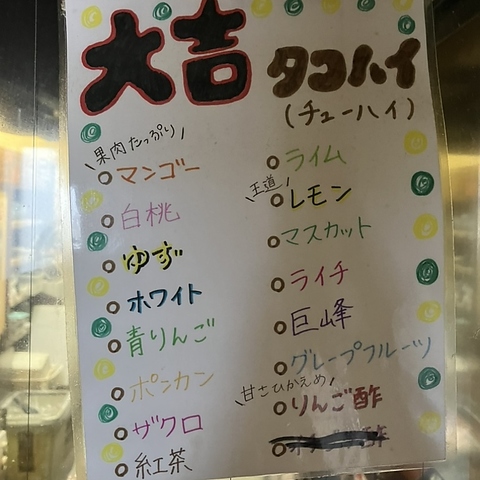 大吉
タコハイ
(チューハイ)
果肉たっぷり
マンゴー
白桃
ゆず
ホワイト
青りんご
ポンカン
ザクロ
紅茶
ライム
王道
レモン
マスカット
ライチ
巨峰
グレープフルーツ
甘さひかえめ
りんご酢